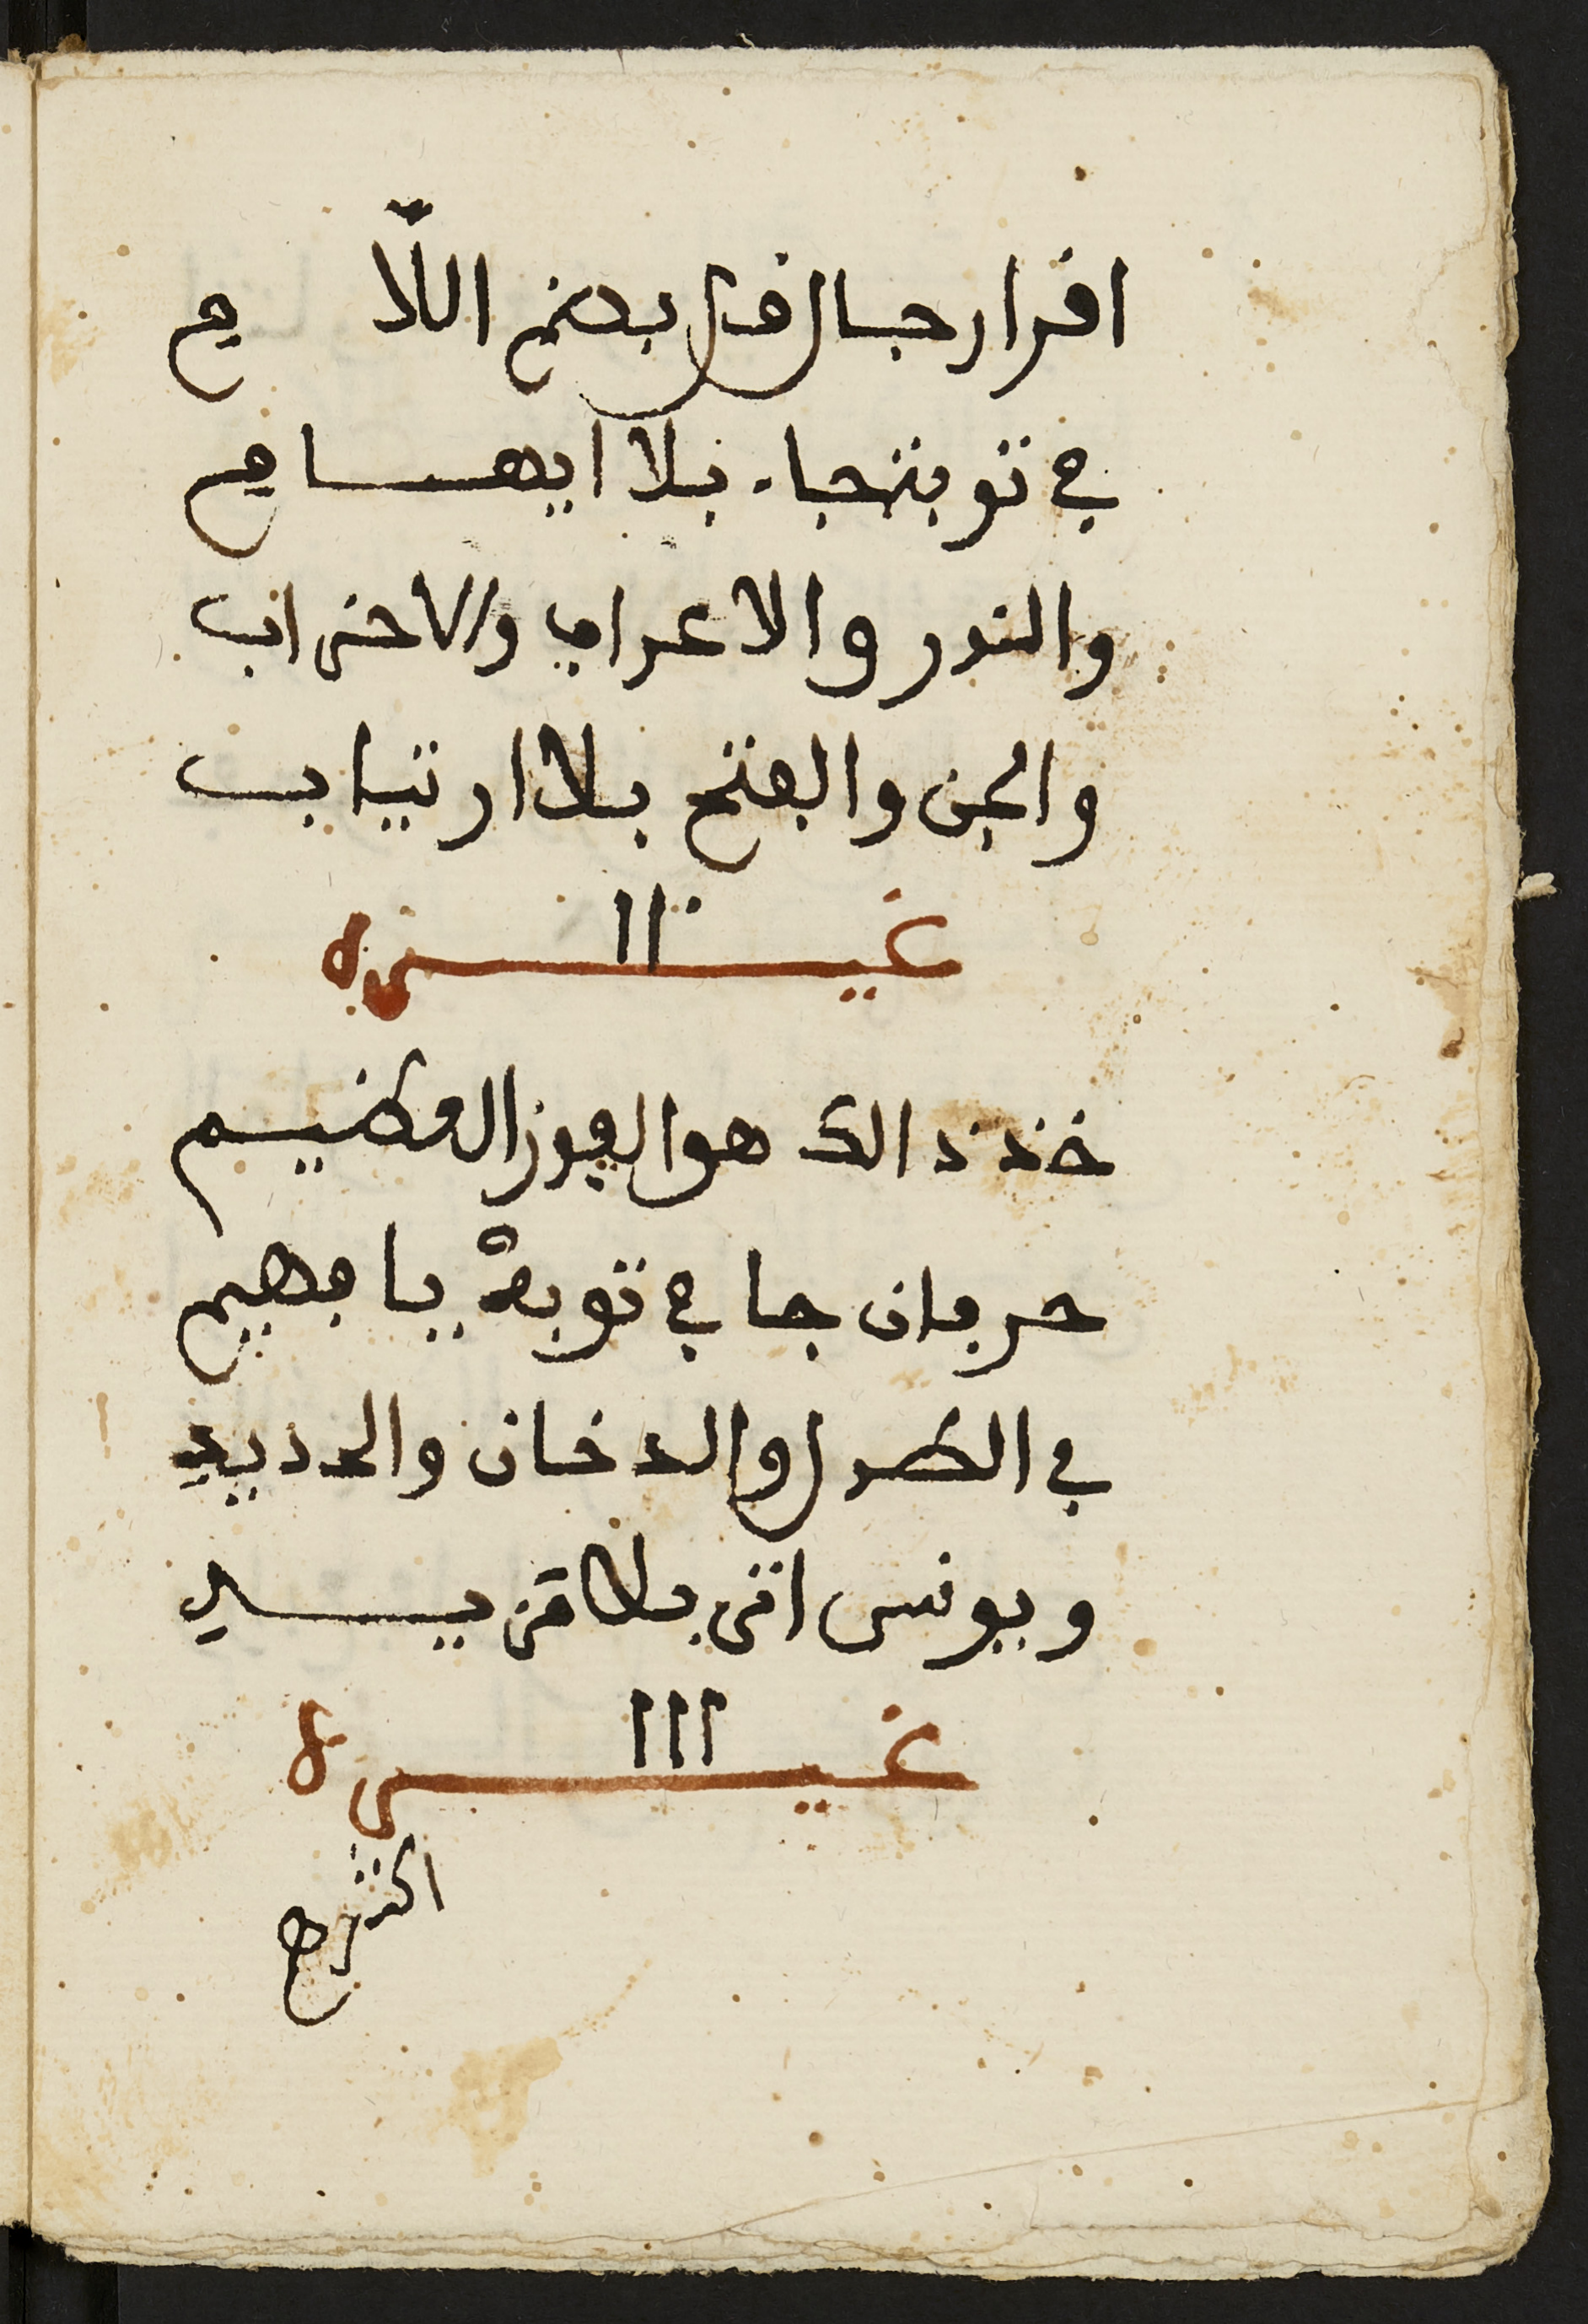 اقرا رجال قل بضم اللام
في توبة جاء بلا ابهام
والنور والاعراف والاحزاب
والجن والفتح بلا ارتياب
غيره
خذ ذالك هو الفوز العظيم
حرفان جا في توبة يا فهيم
في الطول والدخان والحديد
ويونس اتى بلا مزيد
غيره